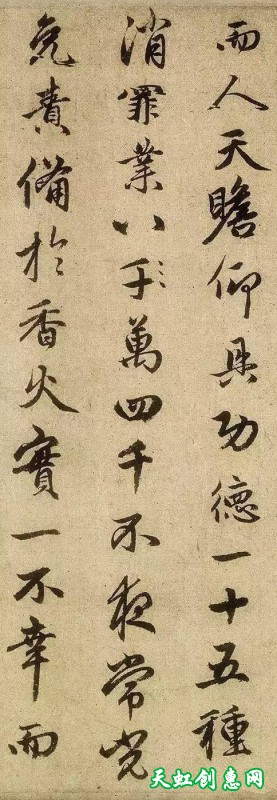 而人天瞻仰具功德一十五種
消罪業八千萬四千不夜常光
免費備於香火實一不幸而
天虹创惠网